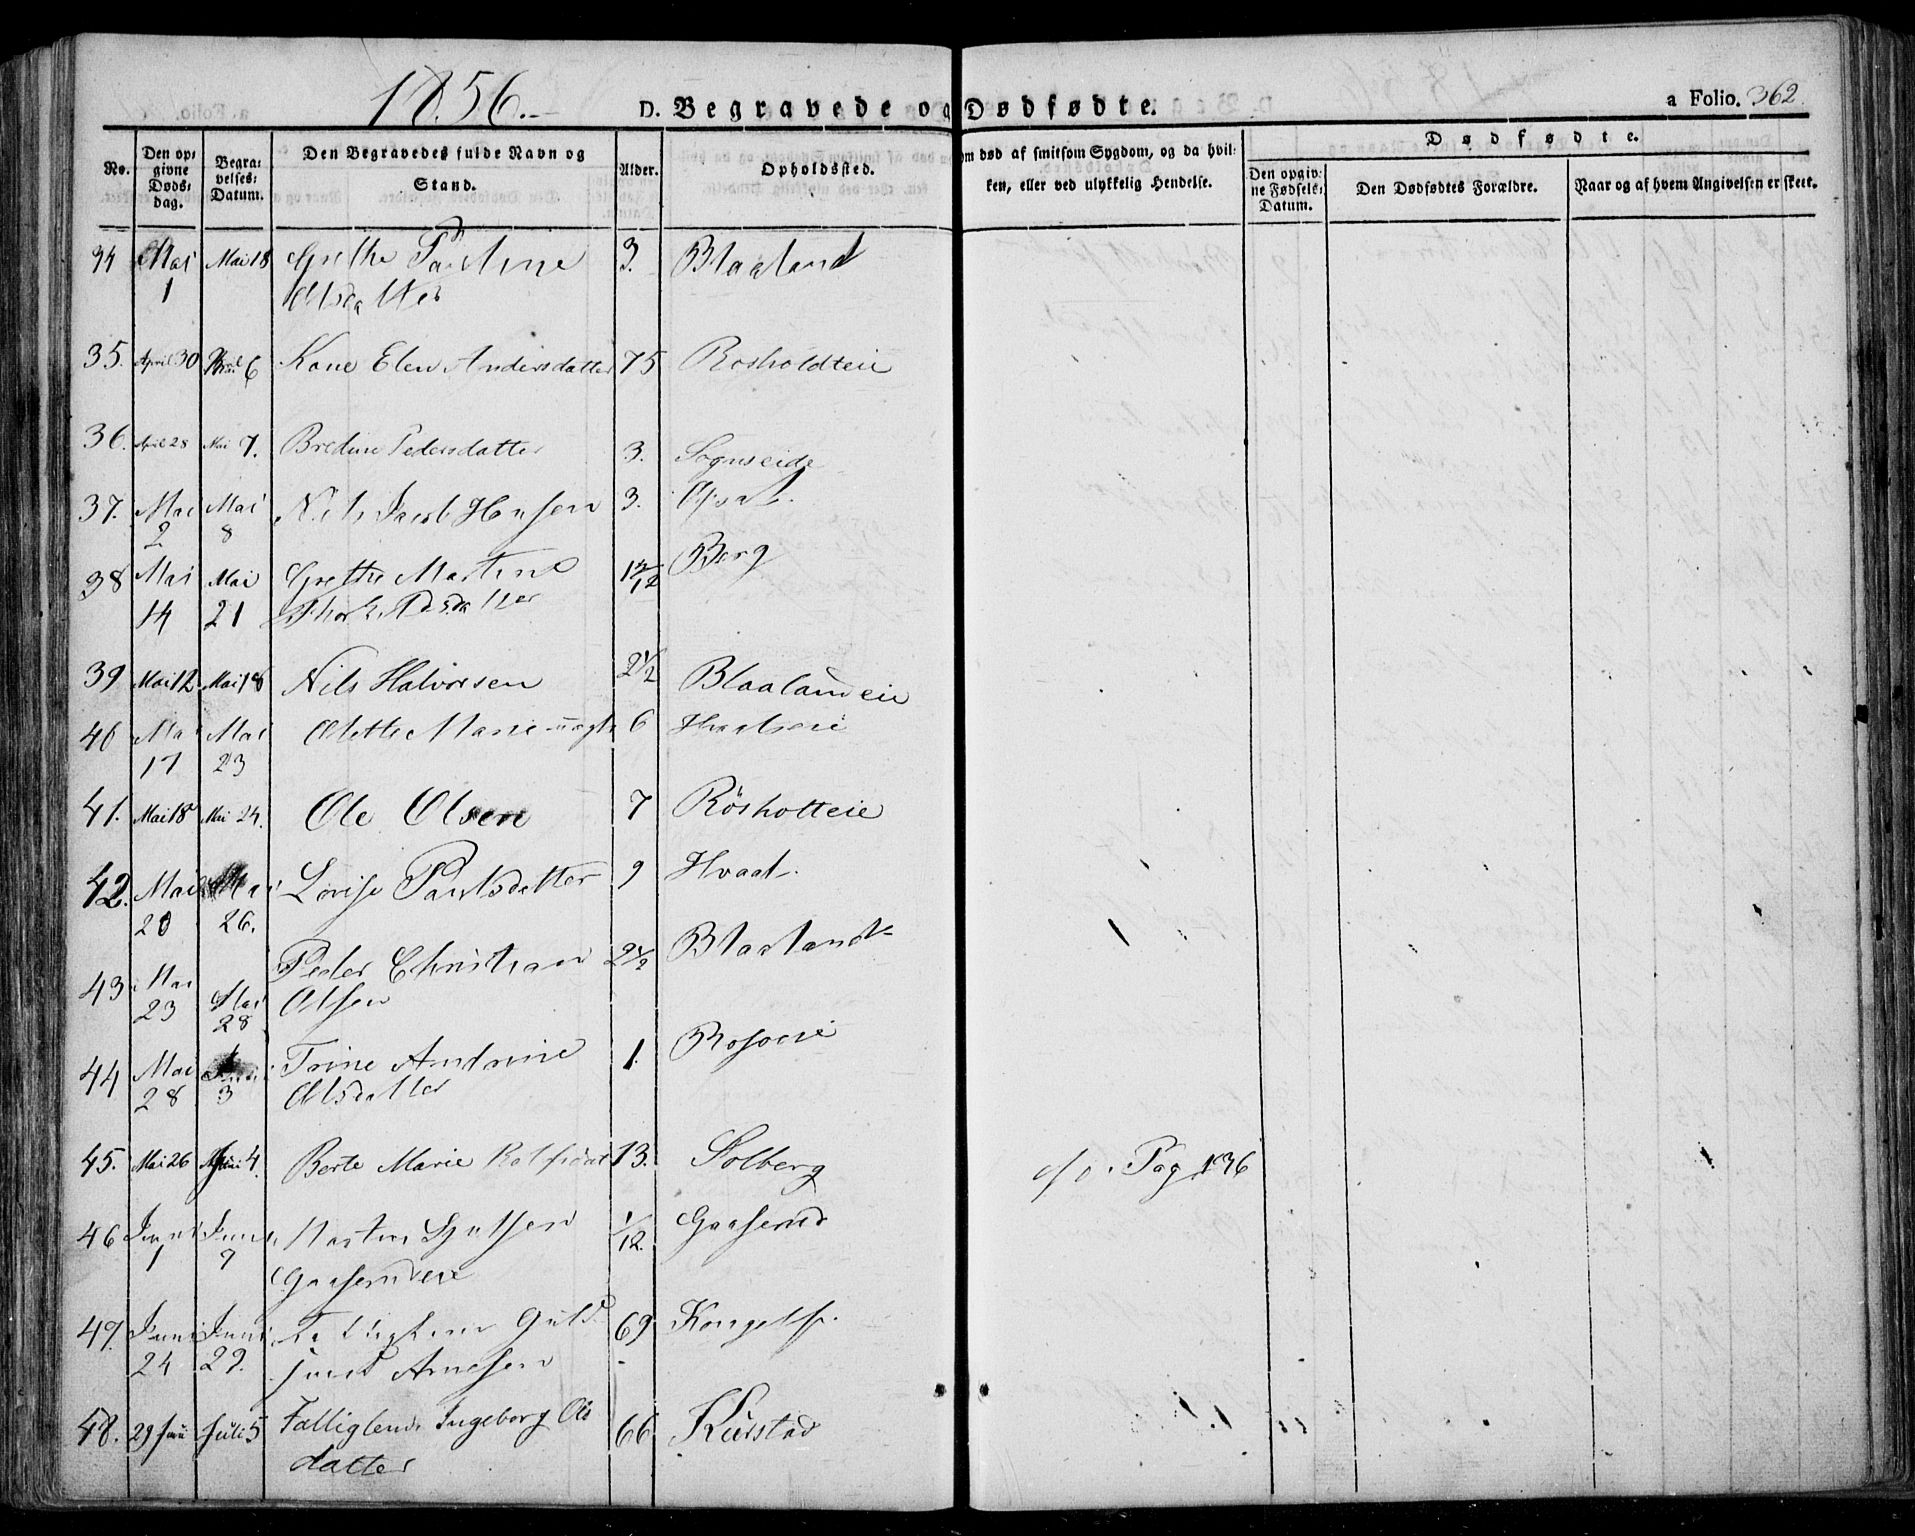 1856.
D. Begravede og Dødfødte.
a Folio. 362.
No.
Den opgivne Dødsdag.
Begravelses-Datum.
Den Begravedes fulde Navn og Stand.
Alder.
Opholdssted.
Om død af smitsom Sygdom, og da hvilken, eller ved ulykkelig Hendelse.
Dødfødte.
Den opgivne Fødsels-Datum.
Den Dødfødtes Forældre.
Naar og af hvem Angivelsen er skeet.
34 Mai 1 Mai 18 Grethe Pauline 3. Blaaland
Olsdatter
35. April 30 6 Kone Elen Andersdatter 75 Rosholdteie
36. April 28 Mai 7. Bredine Pedersdatter 3. Sognseide
37. Mai 2 Mai 8 Nils Jacob Hansen 3. Opsal.
38 Mai 14 Mai 21 Grethe Martine Berg
39 Mai 12. Mai 18 Nils Halvorsen 2 1/2 Blaalandeie
40 Mai 17 Mai 23 Olette Marie 6 Hvalseie
41. Mai 18 Mai 24. Ole Olsen 7 Rösholtteie
42. Mai 20 Mai 26. Lovise Paulsdatter 9 Hvaal.
43 Mai 23 Mai 28 Peder Christian 2 1/2 Blaaland
Olsen
44 Mai 28 Juni 3 Trine Andrine 1. Rosoeie
Olsdatter
45. Mai 26 Juni 4. Berte Marie Rolfsdat 13. Solberg
Pag 136
46 Juni 1 Juni 9 Martin 1/12. Gaaserud
Gaaserudeie
47. Juni 24 Juni 29. Guld 69
Arnesen
48. 29 Juni Juli 5 Falliglem Ingeborg Ols 66 Kurstad
datter